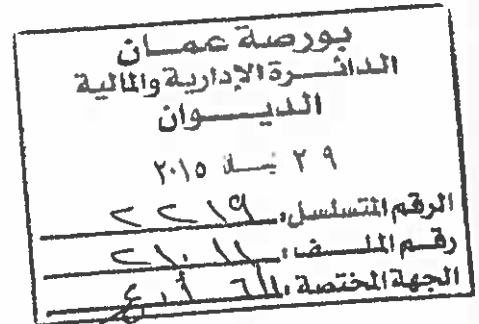 بورصة عمان
الدائرة الإدارية والمالية
الديوان
٢٩ نيسان ٢٠١٥
الرقم المتسلسل: ٢٢١٩
رقم الملف:
الجهة المختصة: